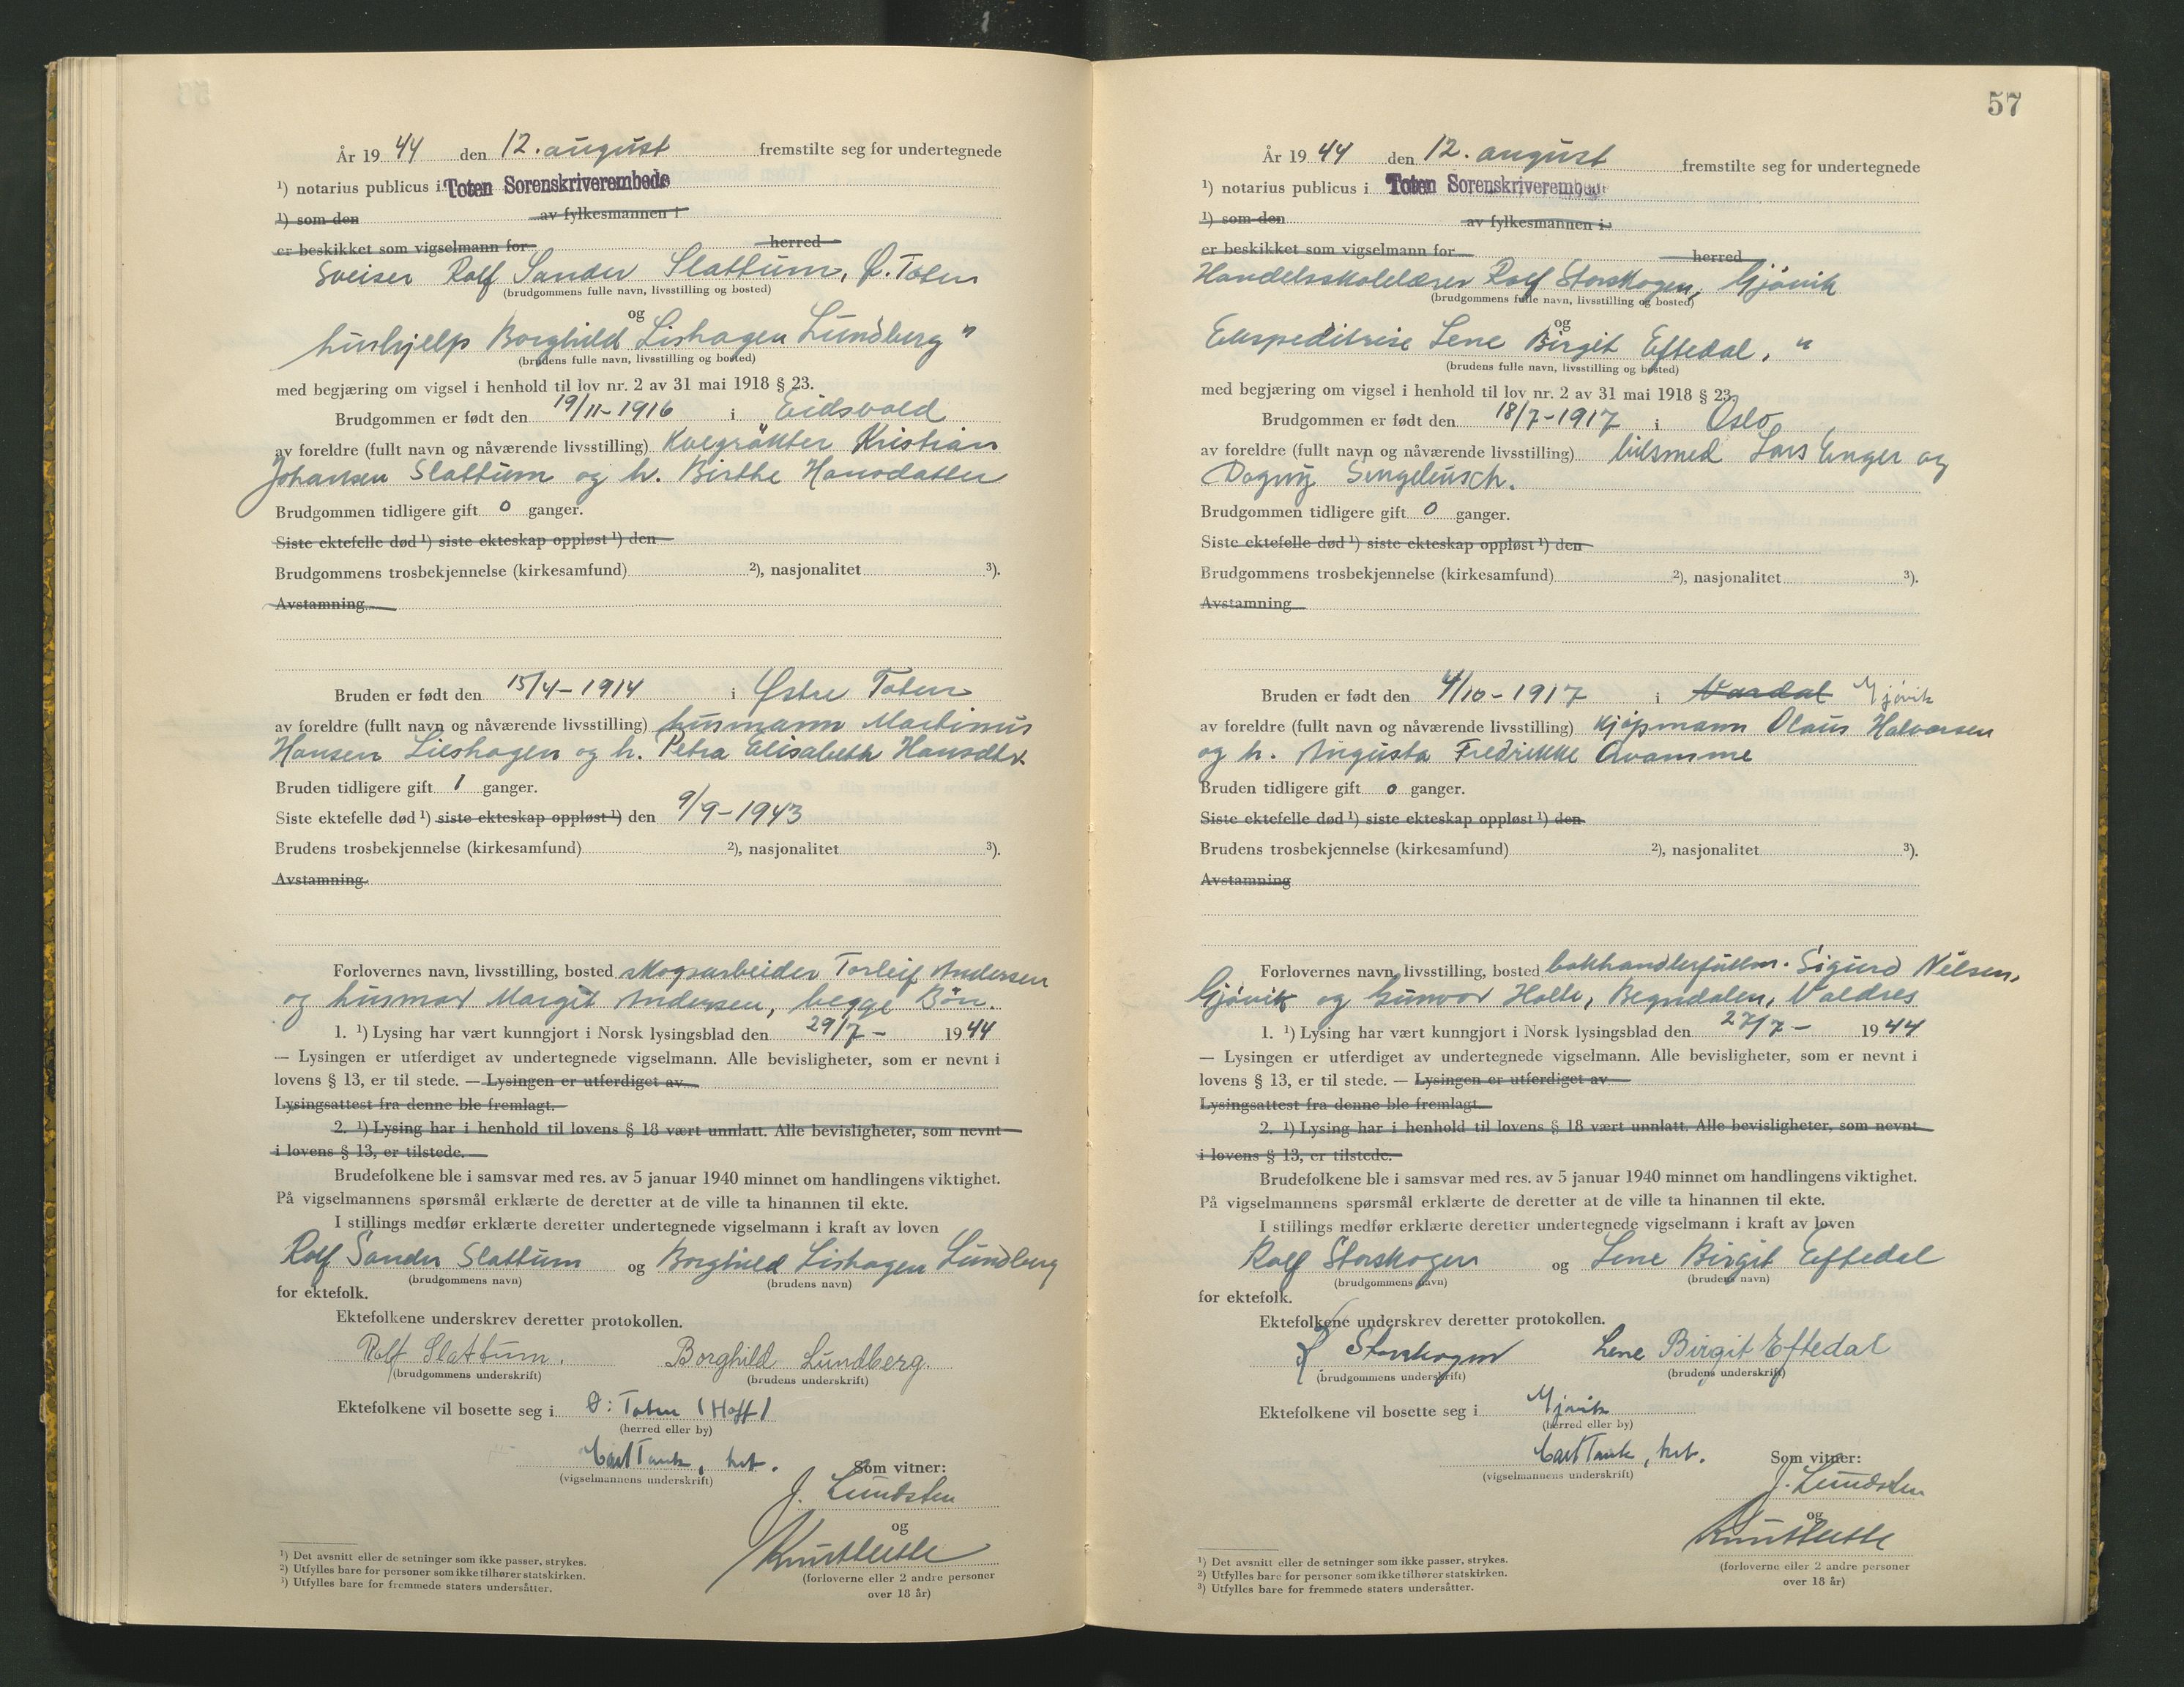 År 1944 den 12. august fremstilte seg for undertegnede
¹) notarius publicus i Toten Sorenskriverembede
¹) som den av fylkesmannen i
er beskikket som vigselmann for herred
Sveiser Rolf Sander Slattum, Ø. Toten
(brudgommens fulle navn, livsstilling og bosted)
og
hushjelp Borghild Lishagen Lundberg "
(brudens fulle navn, livsstilling og bosted)
med begjæring om vigsel i henhold til lov nr. 2 av 31 mai 1918 § 23.
Brudgommen er født den 19/11-1916 i Eidsvold
av foreldre (fullt navn og nåværende livsstilling) Kvegrøkter Kristian
Johansen Slattum og h. Birthe Hansdatter
Brudgommen tidligere gift 0 ganger.
Siste ektefelle død ¹) siste ekteskap oppløst ¹) den
Brudgommens trosbekjennelse (kirkesamfund) ²), nasjonalitet ³).
Avstamning
Bruden er født den 15/4-1914 i Østre Toten
av foreldre (fullt navn og nåværende livsstilling) husmann Martinius
Hansen Lieshagen og h. Petra Elisabeth Hansdtr
Bruden tidligere gift 1 ganger.
Siste ektefelle død ¹) siste ekteskap oppløst ¹) den 9/9-1943
Brudens trosbekjennelse (kirkesamfund) ²), nasjonalitet ³).
Avstamning
Forlovernes navn, livsstilling, bosted skogsarbeider Torleif Andersen
og husmor Margit Andersen, begge Bøn.
1. ¹) Lysing har vært kunngjort i Norsk lysingsblad den 29/7- 1944
— Lysingen er utferdiget av undertegnede vigselmann. Alle bevisligheter, som er nevnt i
lovens § 13, er til stede. — Lysingen er utferdiget av
Lysingsattest fra denne ble fremlagt.
2. ¹) Lysing har i henhold til lovens § 18 vært unnlatt. Alle bevisligheter, som nevnt
i lovens § 13, er tilstede.
Brudefolkene ble i samsvar med res. av 5 januar 1940 minnet om handlingens viktighet.
På vigselmannens spørsmål erklærte de deretter at de ville ta hinannen til ekte.
I stillings medfør erklærte deretter undertegnede vigselmann i kraft av loven
Rolf Sander Slattum og Borghild Lishagen Lundberg
(brudgommens navn) (brudens navn)
for ektefolk.
Ektefolkene underskrev deretter protokollen.
Rolf Slattum. Borghild Lundberg.
(brudgommens underskrift) (brudens underskrift)
Ektefolkene vil bosette seg i Ø: Toten (Hoff)
(herred eller by)
Carl Tank, kst. Som vitner:
(vigselmannens underskrift)
J. Lundsten
og
(forloverne eller 2 andre personer
over 18 år)
¹) Det avsnitt eller de setninger som ikke passer, strykes.
²) Utfylles bare for personer som ikke tilhører statskirken.
³) Utfylles bare for fremmede staters undersåtter.
57
År 1944 den 12. august fremstilte seg for undertegnede
¹) notarius publicus i Toten Sorenskriverembede
¹) som den av fylkesmannen i
er beskikket som vigselmann for herred
Handelsskolelærer Rolf Storskogen, Gjøvik
(brudgommens fulle navn, livsstilling og bosted)
og
Ekspeditrise Lene Birgit Eftedal, "
(brudens fulle navn, livsstilling og bosted)
med begjæring om vigsel i henhold til lov nr. 2 av 31 mai 1918 § 23.
Brudgommen er født den 18/7-1917 i Oslo
av foreldre (fullt navn og nåværende livsstilling) bilsmed Lars Enger og
Dagny Sengebusch.
Brudgommen tidligere gift 0 ganger.
Siste ektefelle død ¹) siste ekteskap oppløst ¹) den
Brudgommens trosbekjennelse (kirkesamfund) ²), nasjonalitet ³).
Avstamning
Bruden er født den 4/10-1917 i Vardal Gjøvik
av foreldre (fullt navn og nåværende livsstilling) kjøpmann Olaus Halvorsen
og h. Augusta Fredrikke Kvamme
Bruden tidligere gift 0 ganger.
Siste ektefelle død ¹) siste ekteskap oppløst ¹) den
Brudens trosbekjennelse (kirkesamfund) ²), nasjonalitet ³).
Avstamning
Forlovernes navn, livsstilling, bosted bokhandlerfullm. Sigurd Nilsen,
Gjøvik og Gunvor Holte, Begndalen, Valdres
1. ¹) Lysing har vært kunngjort i Norsk lysingsblad den 27/7- 1944
— Lysingen er utferdiget av undertegnede vigselmann. Alle bevisligheter, som er nevnt i
lovens § 13, er til stede. — Lysingen er utferdiget av
Lysingsattest fra denne ble fremlagt.
2. ¹) Lysing har i henhold til lovens § 18 vært unnlatt. Alle bevisligheter, som nevnt
i lovens § 13, er tilstede.
Brudefolkene ble i samsvar med res. av 5 januar 1940 minnet om handlingens viktighet.
På vigselmannens spørsmål erklærte de deretter at de ville ta hinannen til ekte.
I stillings medfør erklærte deretter undertegnede vigselmann i kraft av loven
Rolf Storskogen og Lene Birgit Eftedal
(brudgommens navn) (brudens navn)
for ektefolk.
Ektefolkene underskrev deretter protokollen.
R Storskogen Lene Birgit Eftedal
(brudgommens underskrift) (brudens underskrift)
Ektefolkene vil bosette seg i Gjøvik
(herred eller by)
Carl Tank, kst. Som vitner:
(vigselmannens underskrift)
J. Lundsten
og
(forloverne eller 2 andre personer
over 18 år)
¹) Det avsnitt eller de setninger som ikke passer, strykes.
²) Utfylles bare for personer som ikke tilhører statskirken.
³) Utfylles bare for fremmede staters undersåtter.